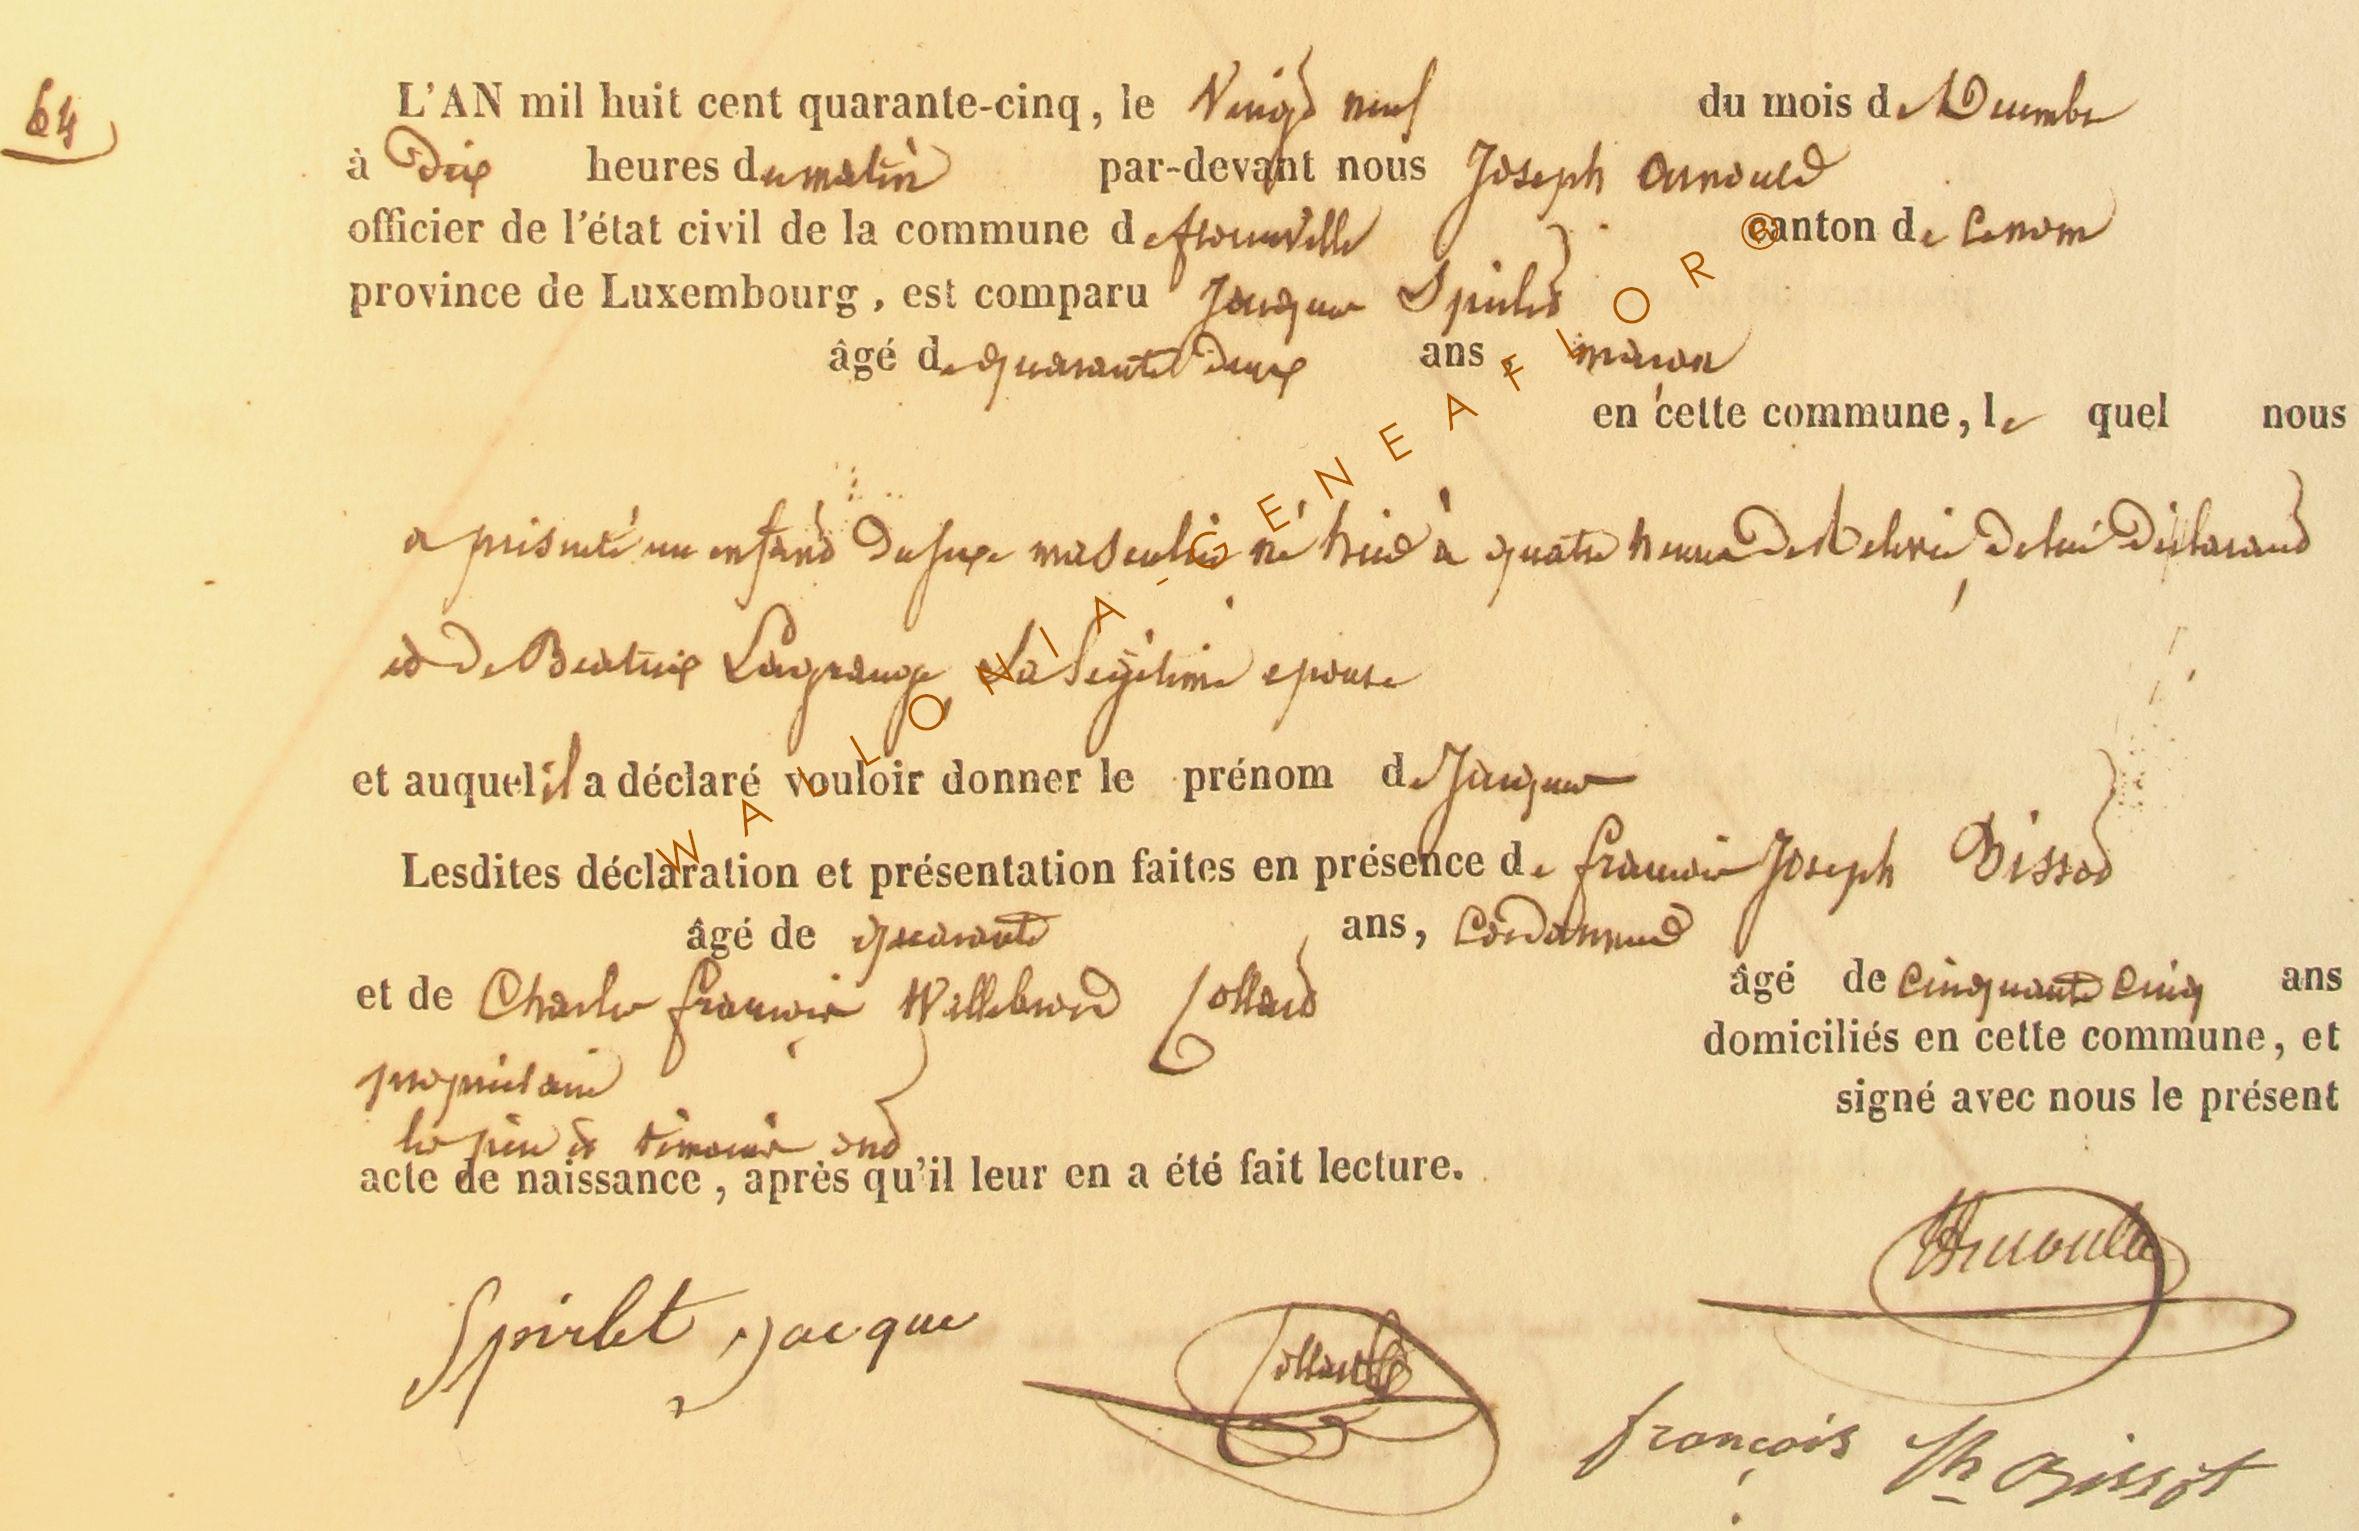 64
L'AN mil huit cent quarante-cinq, le Vingt neuf du mois de Decembre
à Dix heures du matin par-devant nous Joseph Arnould
officier de l'état civil de la commune de florenville canton de Ce nom
province de Luxembourg, est comparu Jacques Spirlet
âgé de quarante Deux ans maçon
en cette commune, le quel nous
a présenté un enfant Du sexe masculin né hier à quatre heures De Relevée, De lui Déclarant
et De Beatrix Lagrange Sa legitime epouse
et auquel il a déclaré vouloir donner le prénom de Jacques
Lesdites déclaration et présentation faites en présence de françois Joseph Bissot
âgé de quarante ans, Cordonnier
et de Charles françois Willebrord Collard âgé de Cinquante Cinq ans
propriétaire domiciliés en cette commune, et
les père et témoins ont signé avec nous le présent
acte de naissance, après qu'il leur en a été fait lecture.
Arnould
Spirlet Jacque
Collard
françois Jh Bissot
WALLONIA-GENEAFLOR®